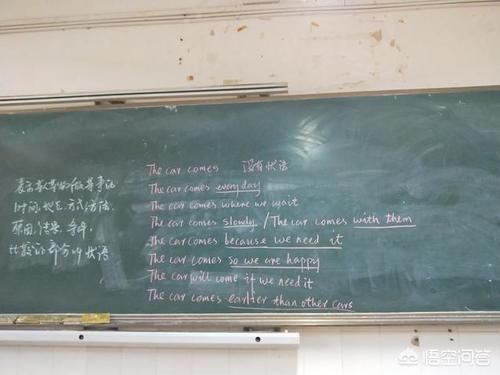 表示教学的做某事的
时间,状态,方式方法,
原因,结果,条件,
比较的部分叫状语
The car comes 没有状语
The car comes every day
The car comes where we wait
The car comes slowly / The car comes with them
The car comes because we need it
The car comes so we are happy
The car will come if we need it
The car comes earlier than other cars
悟空问答